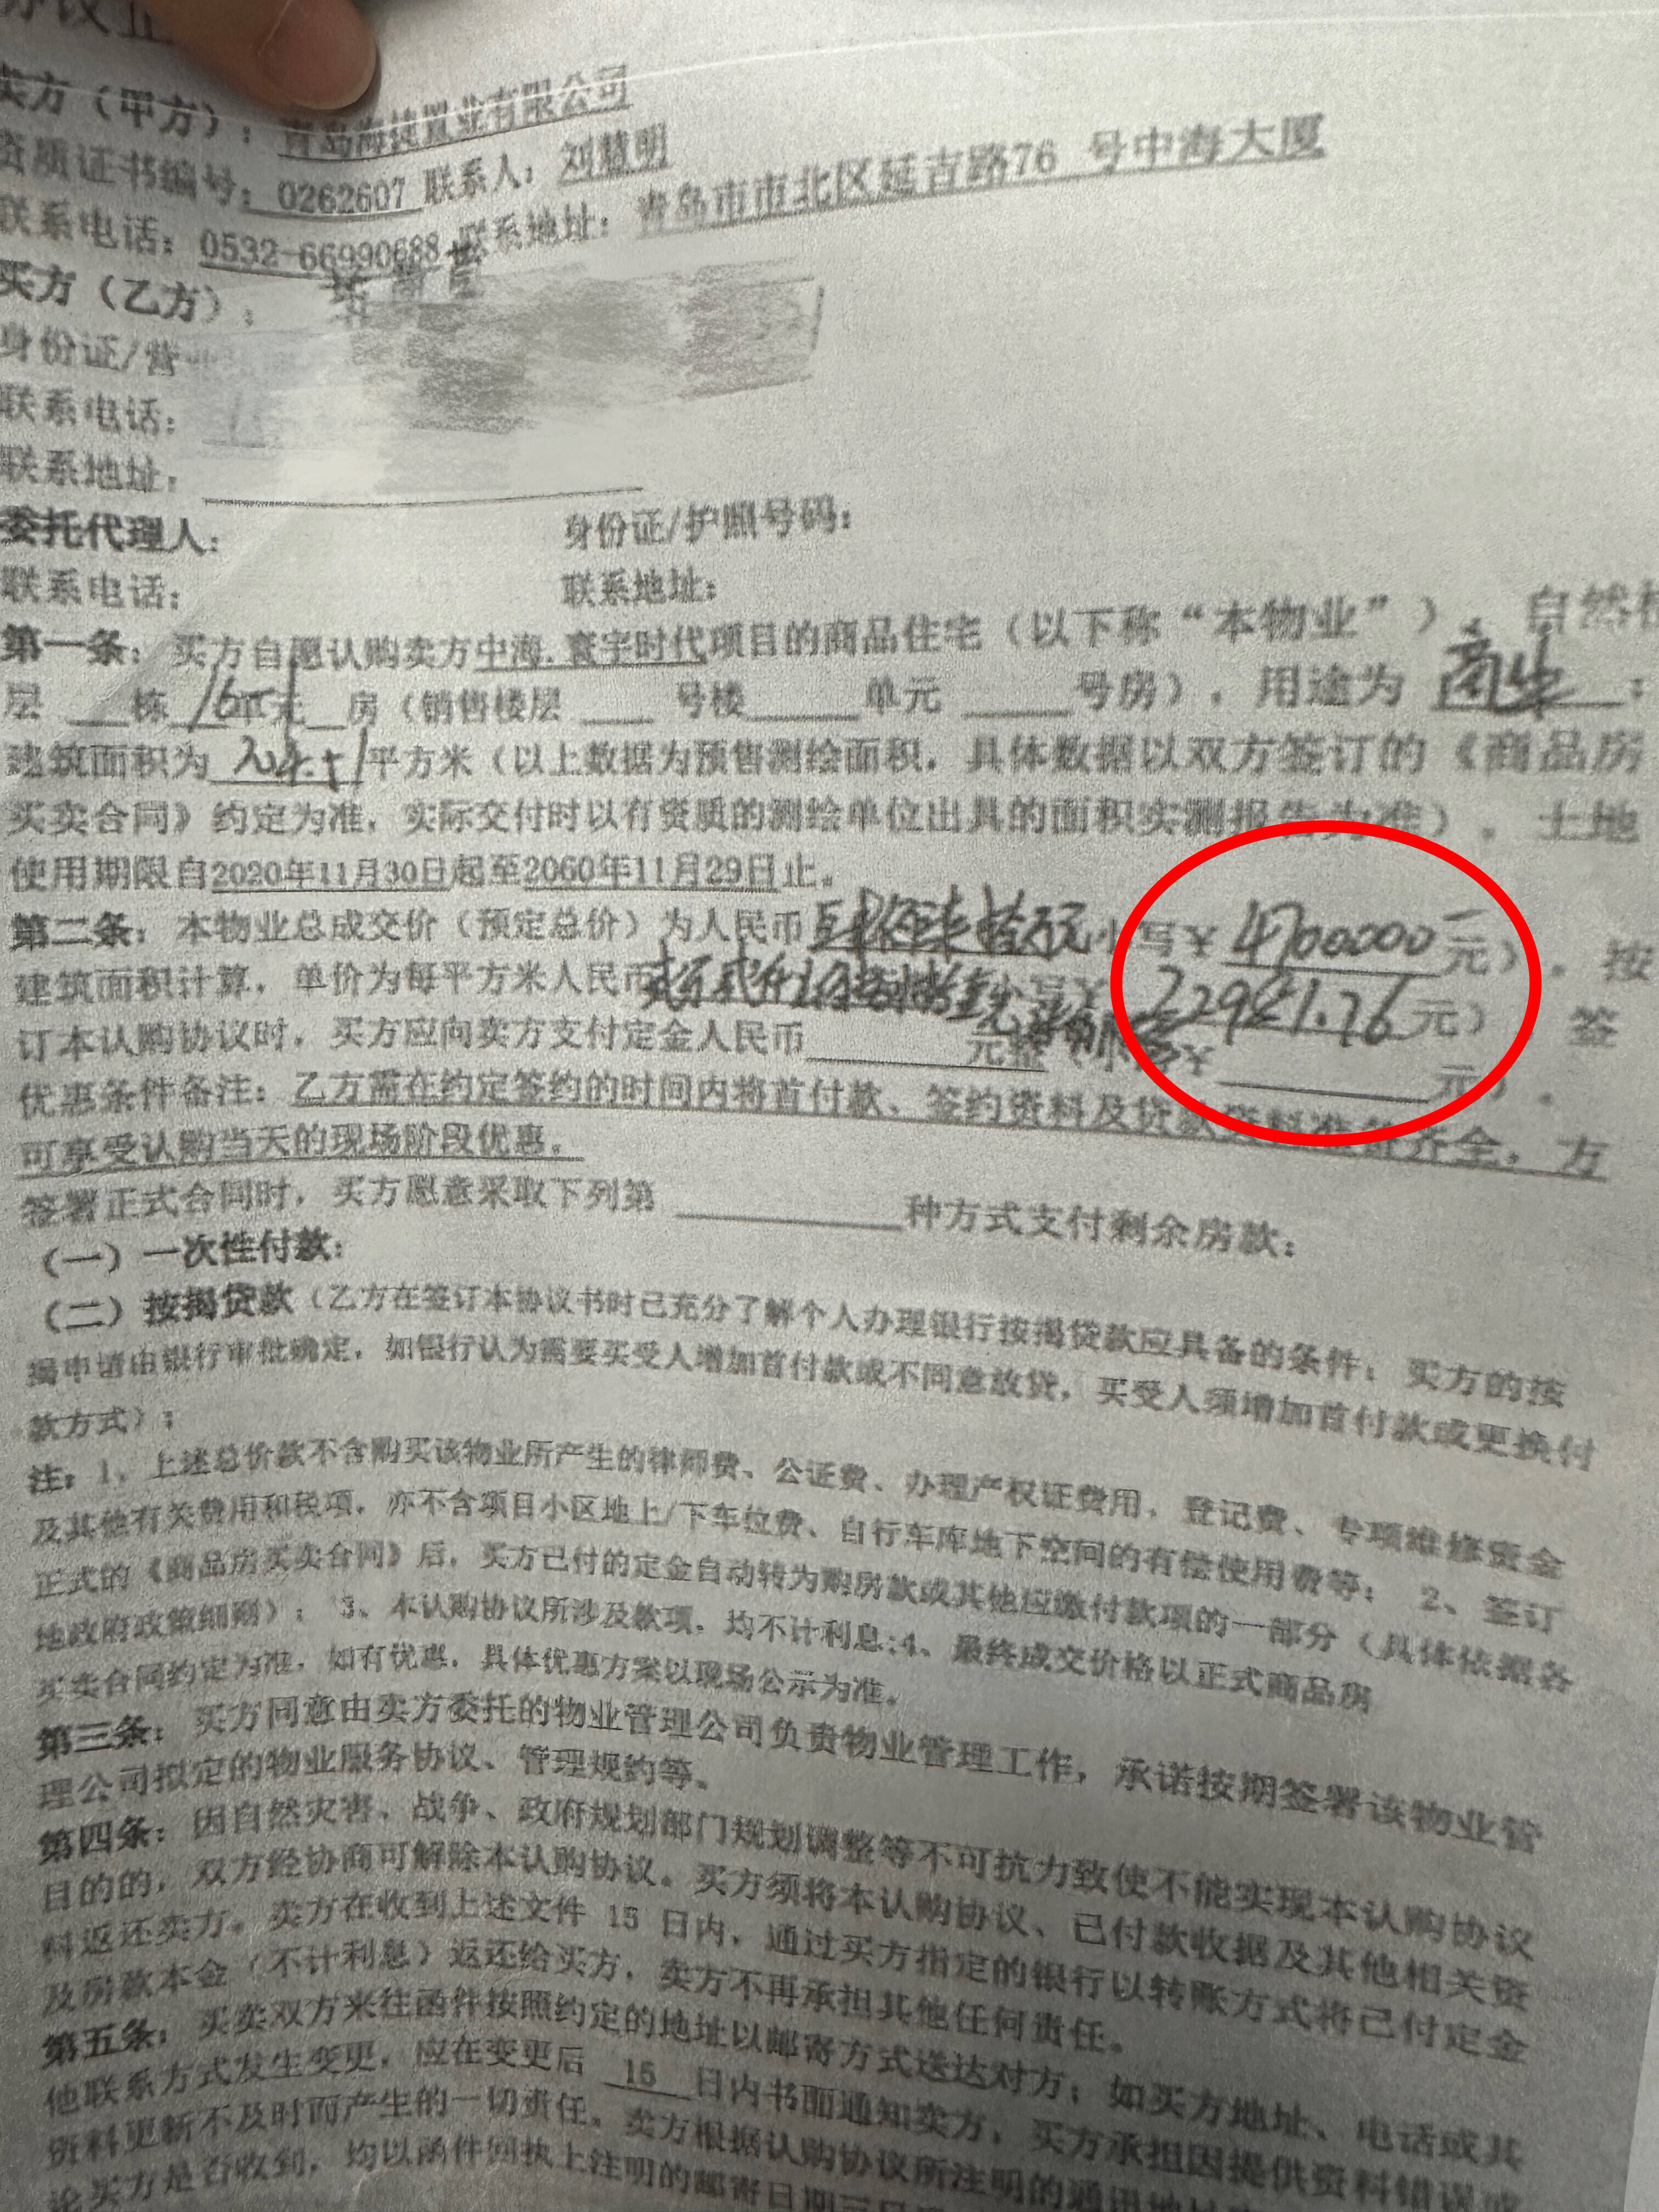 协议
卖方（甲方）：青岛海捷置业有限公司
资质证书编号：0262607 联系人：刘慧明
联系电话：0532-66990688 联系地址：青岛市市北区延吉路76 号中海大厦
买方（乙方）：
身份证/营
联系电话：
联系地址：
委托代理人： 身份证/护照号码：
联系电话： 联系地址：
第一条：买方自愿认购卖方中海.寰宇时代项目的商品住宅（以下称“本物业”），自然
层 栋 单元 房（销售楼层 号楼 单元 号房），用途为 商业；
建筑面积为 平方米（以上数据为预售测绘面积，具体数据以双方签订的《商品房
买卖合同》约定为准，实际交付时以有资质的测绘单位出具的面积实测报告为准），土地
使用期限自2020年11月30日起至2060年11月29日止。
第二条：本物业总成交价（预定总价）为人民币肆佰柒拾万元 小写￥4700000元），按
建筑面积计算，单价为每平方米人民币 小写￥ 229 1.76元） 签
订本认购协议时，买方应向卖方支付定金人民币 元整（小写￥ 元）。
优惠条件备注：乙方需在约定签约的时间内将首付款、签约资料及贷款资料准备齐全，方
可享受认购当天的现场阶段优惠。
签署正式合同时，买方愿意采取下列第 种方式支付剩余房款：
（一）一次性付款；
（二）按揭贷款（乙方在签订本协议书时已充分了解个人办理银行按揭贷款应具备的条件；买方的按
揭申请由银行审批确定，如银行认为需要买受人增加首付款或不同意放贷，买受人须增加首付款或更换付
款方式）；
注：1、上述总价款不含购买该物业所产生的律师费、公证费、办理产权证费用，登记费、专项维修资金
及其他有关费用和税项，亦不含项目小区地上/下车位费、自行车库地下空间的有偿使用费等； 2、签订
正式的《商品房买卖合同》后，买方已付的定金自动转为购房款或其他应缴付款项的一部分（具体依据各
地政府政策细则）； 3、本认购协议所涉及款项，均不计利息；4、最终成交价格以正式商品房
买卖合同约定为准，如有优惠，具体优惠方案以现场公示为准。
第三条：买方同意由卖方委托的物业管理公司负责物业管理工作，承诺按期签署该物业管
理公司拟定的物业服务协议、管理规约等。
第四条：因自然灾害、战争、政府规划部门规划调整等不可抗力致使不能实现本认购协议
目的的，双方经协商可解除本认购协议。买方须将本认购协议、已付款收据及其他相关资
料返还卖方。卖方在收到上述文件 15 日内，通过买方指定的银行以转账方式将已付定金
及房款本金（不计利息）返还给买方，卖方不再承担其他任何责任。
第五条：买卖双方来往函件按照约定的地址以邮寄方式送达对方；如买方地址、电话或其
他联系方式发生变更，应在变更后 15 日内书面通知卖方，买方承担因提供资料错误或
资料更新不及时而产生的一切责任。卖方根据认购协议所注明的通讯地址
论买方是否收到，均以函件回执上注明的邮寄日期三日